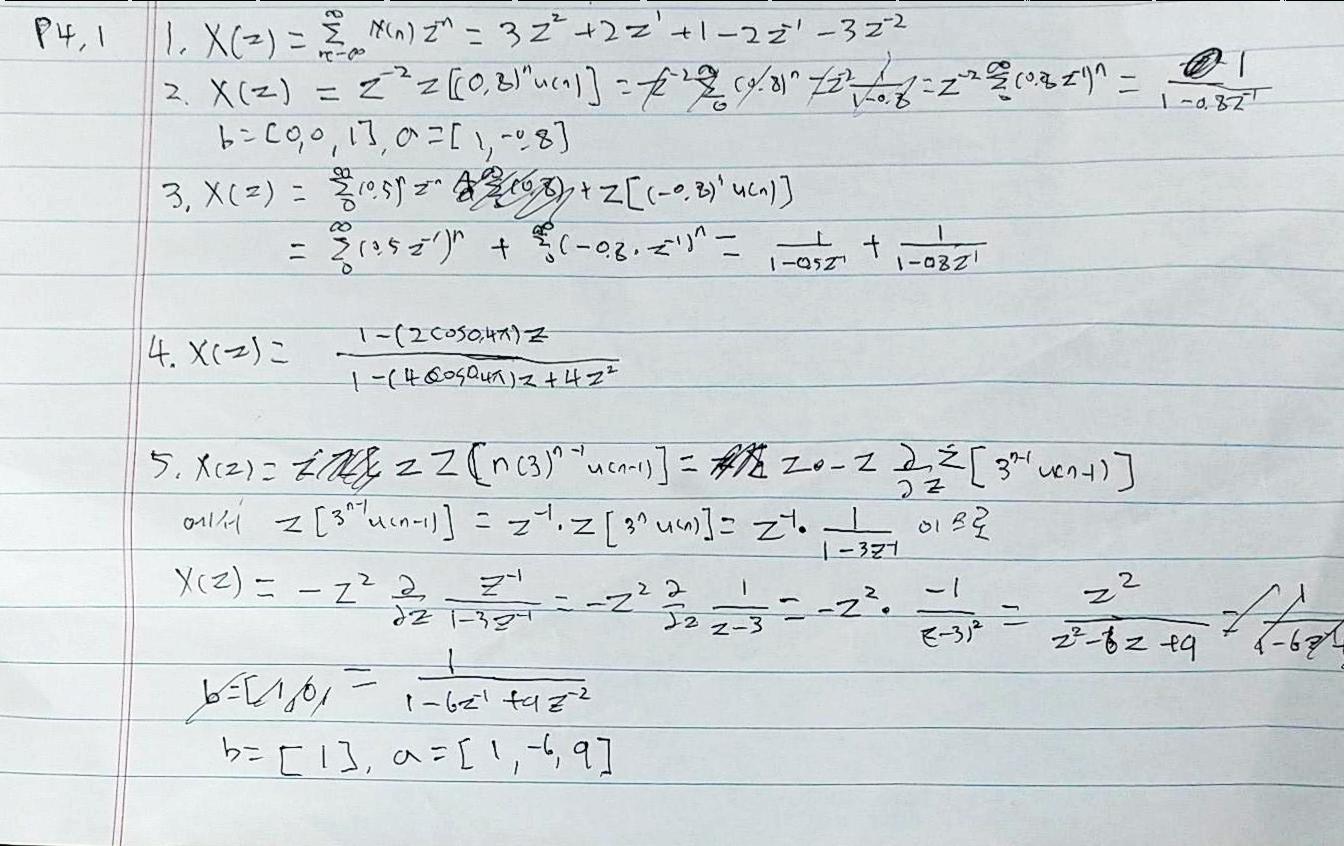 P4,1 1. X(z) = ∑_{n=-∞}^{∞} x(n) z^{-n} = 3z² + 2z¹ + 1 - 2z⁻¹ - 3z⁻²
2. X(z) = z⁻² z[(0,8)ⁿu(n)] = z⁻² ∑_{0}^{∞} (0.8z⁻¹)ⁿ = 1/(1-0.8z⁻¹)
b=[0,0,1], a=[1,-0.8]
3, X(z) = ∑_{0}^{∞} (0.5)ⁿ z⁻ⁿ + z[(-0.8)ⁿ u(n)]
= ∑_{0}^{∞} (0.5z⁻¹)ⁿ + ∑_{0}^{∞} (-0.8.z⁻¹)ⁿ = 1/(1-0.5z⁻¹) + 1/(1-0.8z⁻¹)
4. X(z) = (1-(2cos0.4π)z)/(1-(4cos0.4π)z+4z²)
5. X(z) = z Z[n(3)ⁿ⁻¹u(n-1)] = z·-z ∂/∂z Z[3ⁿ⁻¹u(n-1)]
에서 z[3ⁿ⁻¹u(n-1)] = z⁻¹·z[3ⁿu(n)] = z⁻¹· 1/(1-3z⁻¹) 이므로
X(z) = -z² ∂/∂z z⁻¹/(1-3z⁻¹) = -z² ∂/∂z 1/(z-3) = -z²· -1/(z-3)² = z²/(z²-6z+9)
= 1/(1-6z⁻¹+9z⁻²)
b=[1], a=[1,-6,9]